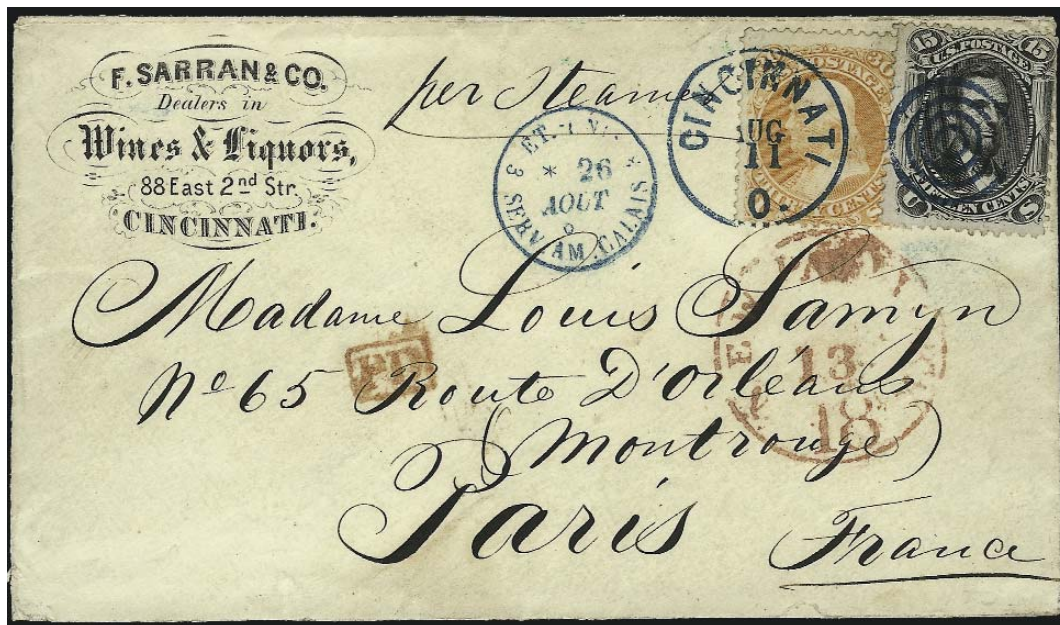 F. SARRAN & CO.
Dealers in
Wines & Liquors,
88 East 2nd Str.
CINCINNATI.
per Steamer
3 SERV. AM. CALAIS
* 26 *
AOUT
CINCINNATI
AUG
11
O.
30
U.S. POSTAGE
CENTS
15 15
U.S. POSTAGE
FIFTEEN CENTS
U S
13
18
Madame Louis Samyn
PD
No 65 Route D'Orléans
(Montrouge)
Paris
France